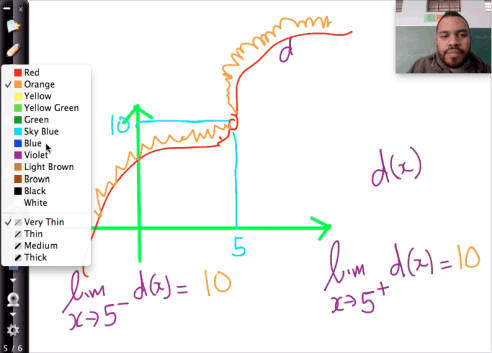 Red
✓ Orange
Yellow
Yellow Green
Green
Sky Blue
Blue
Violet
Light Brown
Brown
Black
White
✓ Very Thin
Thin
Medium
Thick
5 / 6
d
10
5
d(x)
lim x→5⁻ d(x) = 10
lim x→5⁺ d(x) = 10